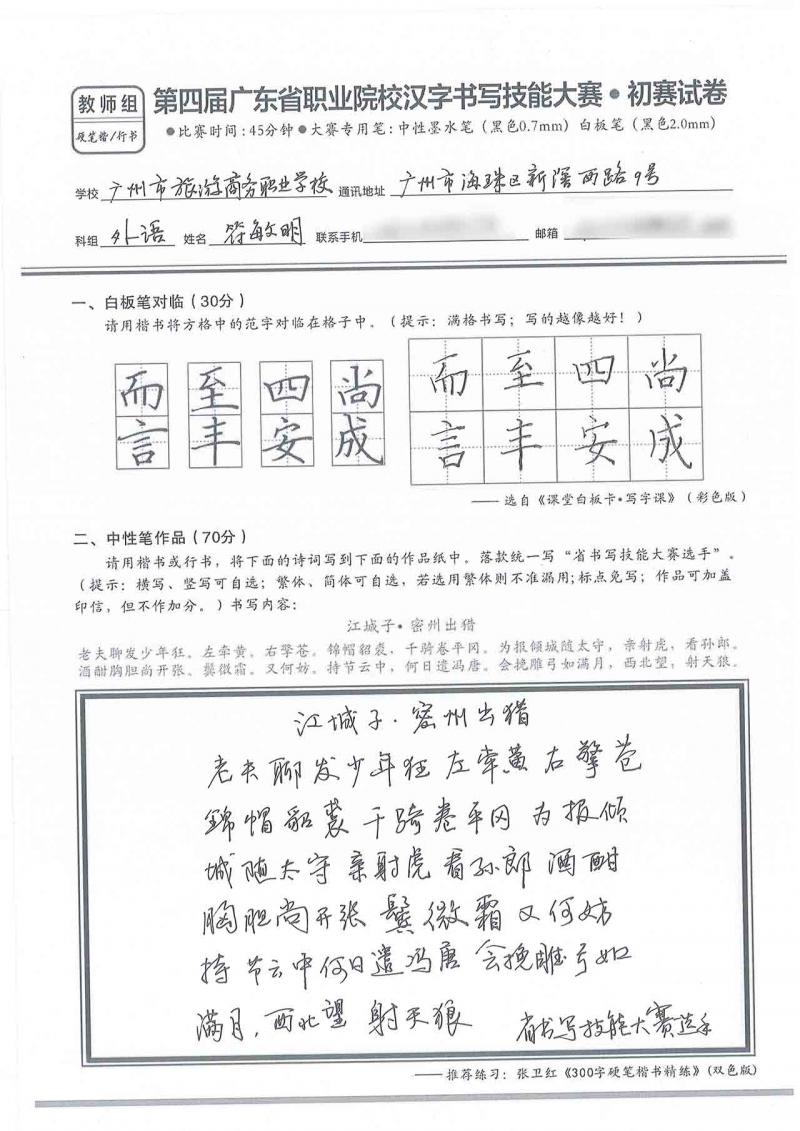 教师组
硬笔楷/行书
第四届广东省职业院校汉字书写技能大赛•初赛试卷
●比赛时间:45分钟●大赛专用笔:中性墨水笔（黑色0.7mm）白板笔（黑色2.0mm）
学校 广州市旅游商务职业学校 通讯地址 广州市海珠区新滘西路9号
科组 外语 姓名 符敏明 联系手机 邮箱
一、白板笔对临（30分）
请用楷书将方格中的范字对临在格子中。（提示：满格书写；写的越像越好！）
而 至 四 尚 而 至 四 尚
言 丰 安 成 言 丰 安 成
——选自《课堂白板卡•写字课》（彩色版）
二、中性笔作品（70分）
请用楷书或行书，将下面的诗词写到下面的作品纸中。落款统一写“省书写技能大赛选手”。
（提示：横写、竖写可自选；繁体、简体可自选，若选用繁体则不准漏用;标点免写；作品可加盖
印信，但不作加分。）书写内容：
江城子•密州出猎
老夫聊发少年狂。左牵黄。右擎苍。锦帽貂裘，千骑卷平冈。为报倾城随太守，亲射虎，看孙郎。
酒酣胸胆尚开张。鬓微霜。又何妨。持节云中，何日遣冯唐。会挽雕弓如满月，西北望，射天狼。
江城子·密州出猎
老夫聊发少年狂 左牵黄 右擎苍
锦帽貂裘 千骑卷平冈 为报倾
城随太守 亲射虎 看孙郎 酒酣
胸胆尚开张 鬓微霜 又何妨
持节云中何日遣冯唐 会挽雕弓如
满月，西北望 射天狼 省书写技能大赛选手
——推荐练习：张卫红《300字硬笔楷书精练》(双色版)